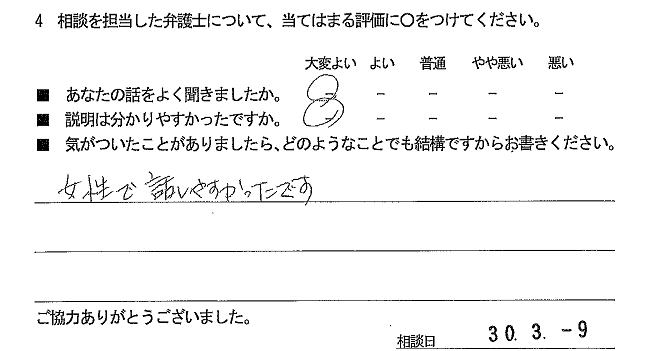 4 相談を担当した弁護士について、当てはまる評価に〇をつけてください。
大変よい よい 普通 やや悪い 悪い
■ あなたの話をよく聞きましたか。 － － － － －
■ 説明は分かりやすかったですか。 － － － － －
■ 気がついたことがありましたら、どのようなことでも結構ですからお書きください。
女性で話しやすかったです
ご協力ありがとうございました。
相談日 30. 3. -9